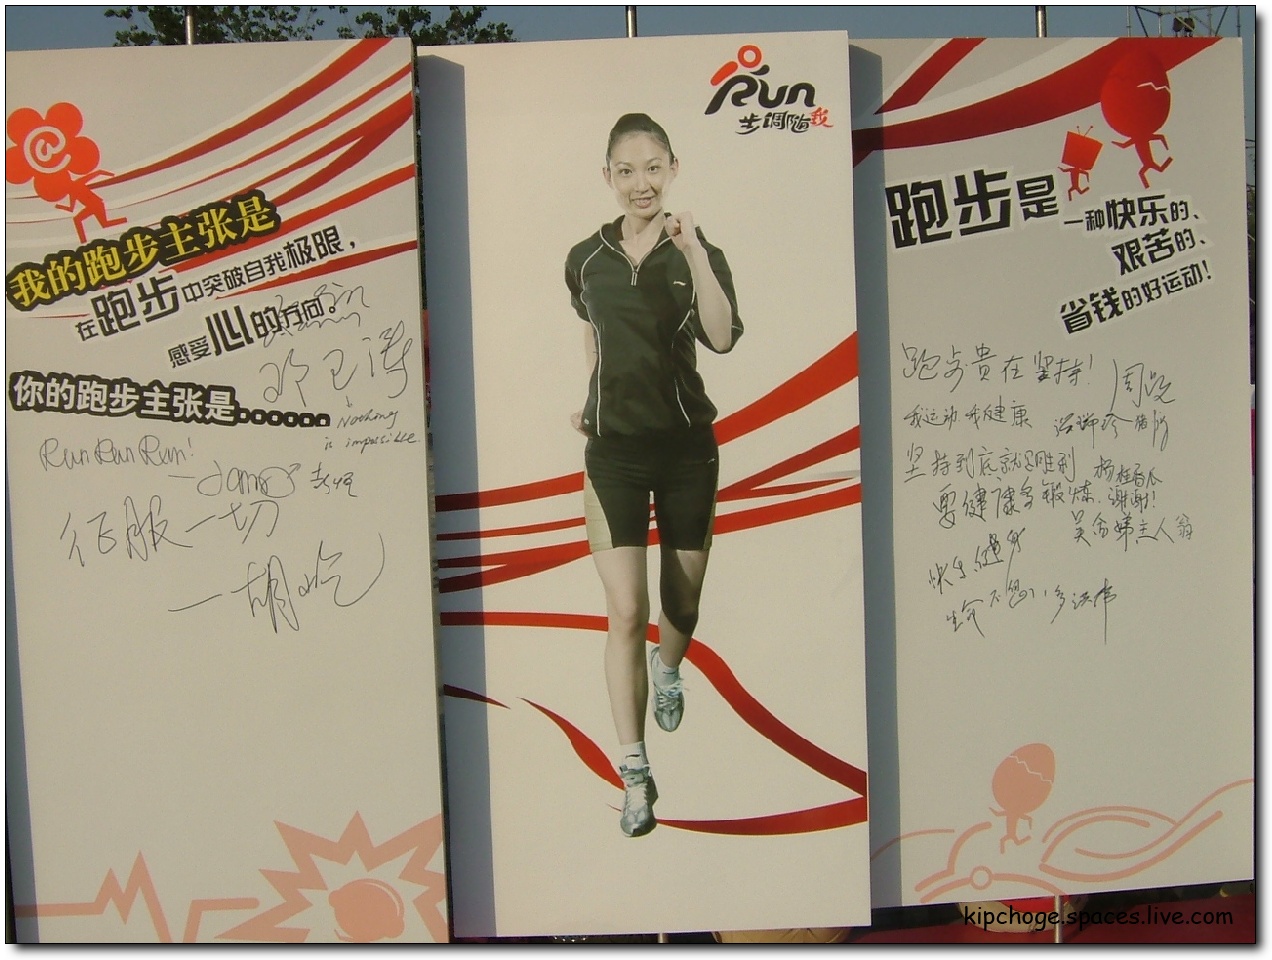 @
我的跑步主张是
在跑步中突破自我极限，
感受心的方向。
你的跑步主张是......
邓卫涛
Nothing
is impossible
Run Run Run!
征服一切
Run
步调随我
跑步是
一种快乐的、
艰苦的、
省钱的好运动!
跑步贵在坚持!
我运动 我健康
坚持到底就是胜利
要健康多锻炼. 谢谢!
主人翁
快乐健身
生命不息
kipchoge.spaces.live.com